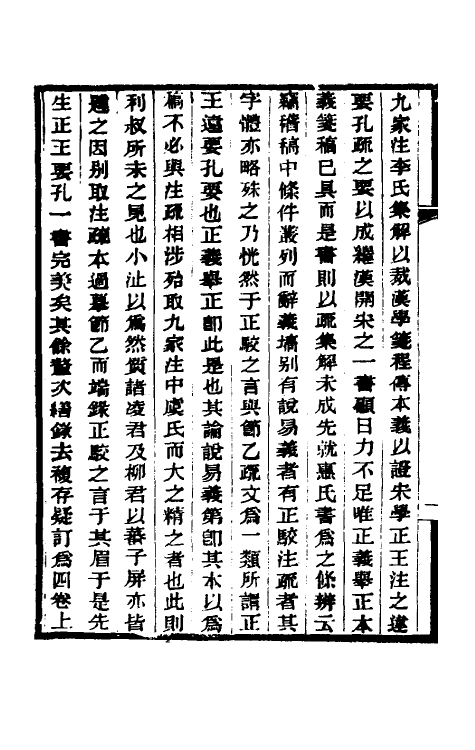 九家注李氏集解以裁漢學箋程傳本義以證宋學正王注之違
要孔疏之要以成繼漢開宋之一書顧日力不足唯正義舉正本
義箋稿已具而是書則以疏集解未成先就惠氏書爲之條辨云
竊稽稿中條件叢列而辭義塙别有說易義者有正駮注疏者其
字體亦略殊之乃恍然于正駮之言與節乙疏文爲一類所謂正
王違要孔要也正義舉正卽此是也其論說易義第卽其本以爲
稿不必與注疏相涉殆取九家注中虞氏而大之精之者也此則
利叔所未之見也小沚以爲然質諸凌君及柳君以蕃子屏亦皆
題之因别取注疏本過摹節乙而端錄正駮之言于其眉于是先
生正王要孔一書完矣其餘釐次繕錄去複存疑訂爲四卷上